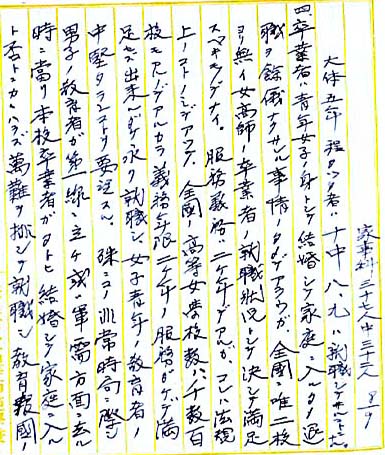 家事科 三十七人中三十三人 8/9
大体五年程タツタ者ハ十中八、九ハ就職シテ居ナイ。
四、卒業者ハ青年女子ノ身トシテ結婚シテ家庭ニ入ルタメ退
職ヲ余儀ナクサレル事情ノタメデアラウガ全国ニ唯二校
ヨリ無イ女高師ノ卒業者ノ就職状況トシテ決シテ満足
スベキモノデナイ。服務義務ハ二ケ年デアルガ、コレハ法規
上ノコトノミデアツテ、全国ノ高等女学校数ハ千数百
校モアルノデアルカラ義務年限二ケ年ノ服務ダケデ満
足セズ出来ルダケ永ク就職シ女子青年ノ教育者ノ
中堅タランコトヲ要望スル。殊ニコノ非常時局ニ際シ
男子ノ教育者ガ第一線ニ立チ或ハ軍需方面ニ去ル
時ニ当リ本校卒業者ガタトヒ結婚シテ家庭ニ入ル
ト否トニカカハラズ萬難ヲ排シテ就職シ教育報国ノ